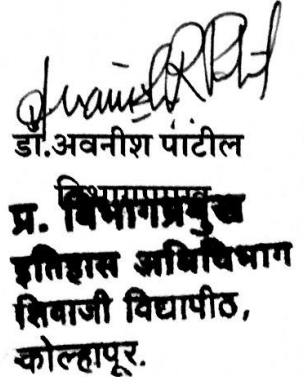 डॉ.अवनीश पाटील
विभागप्रमुख
प्र. विभागप्रमुख
इतिहास अधिविभाग
शिवाजी विद्यापीठ,
कोल्हापूर.